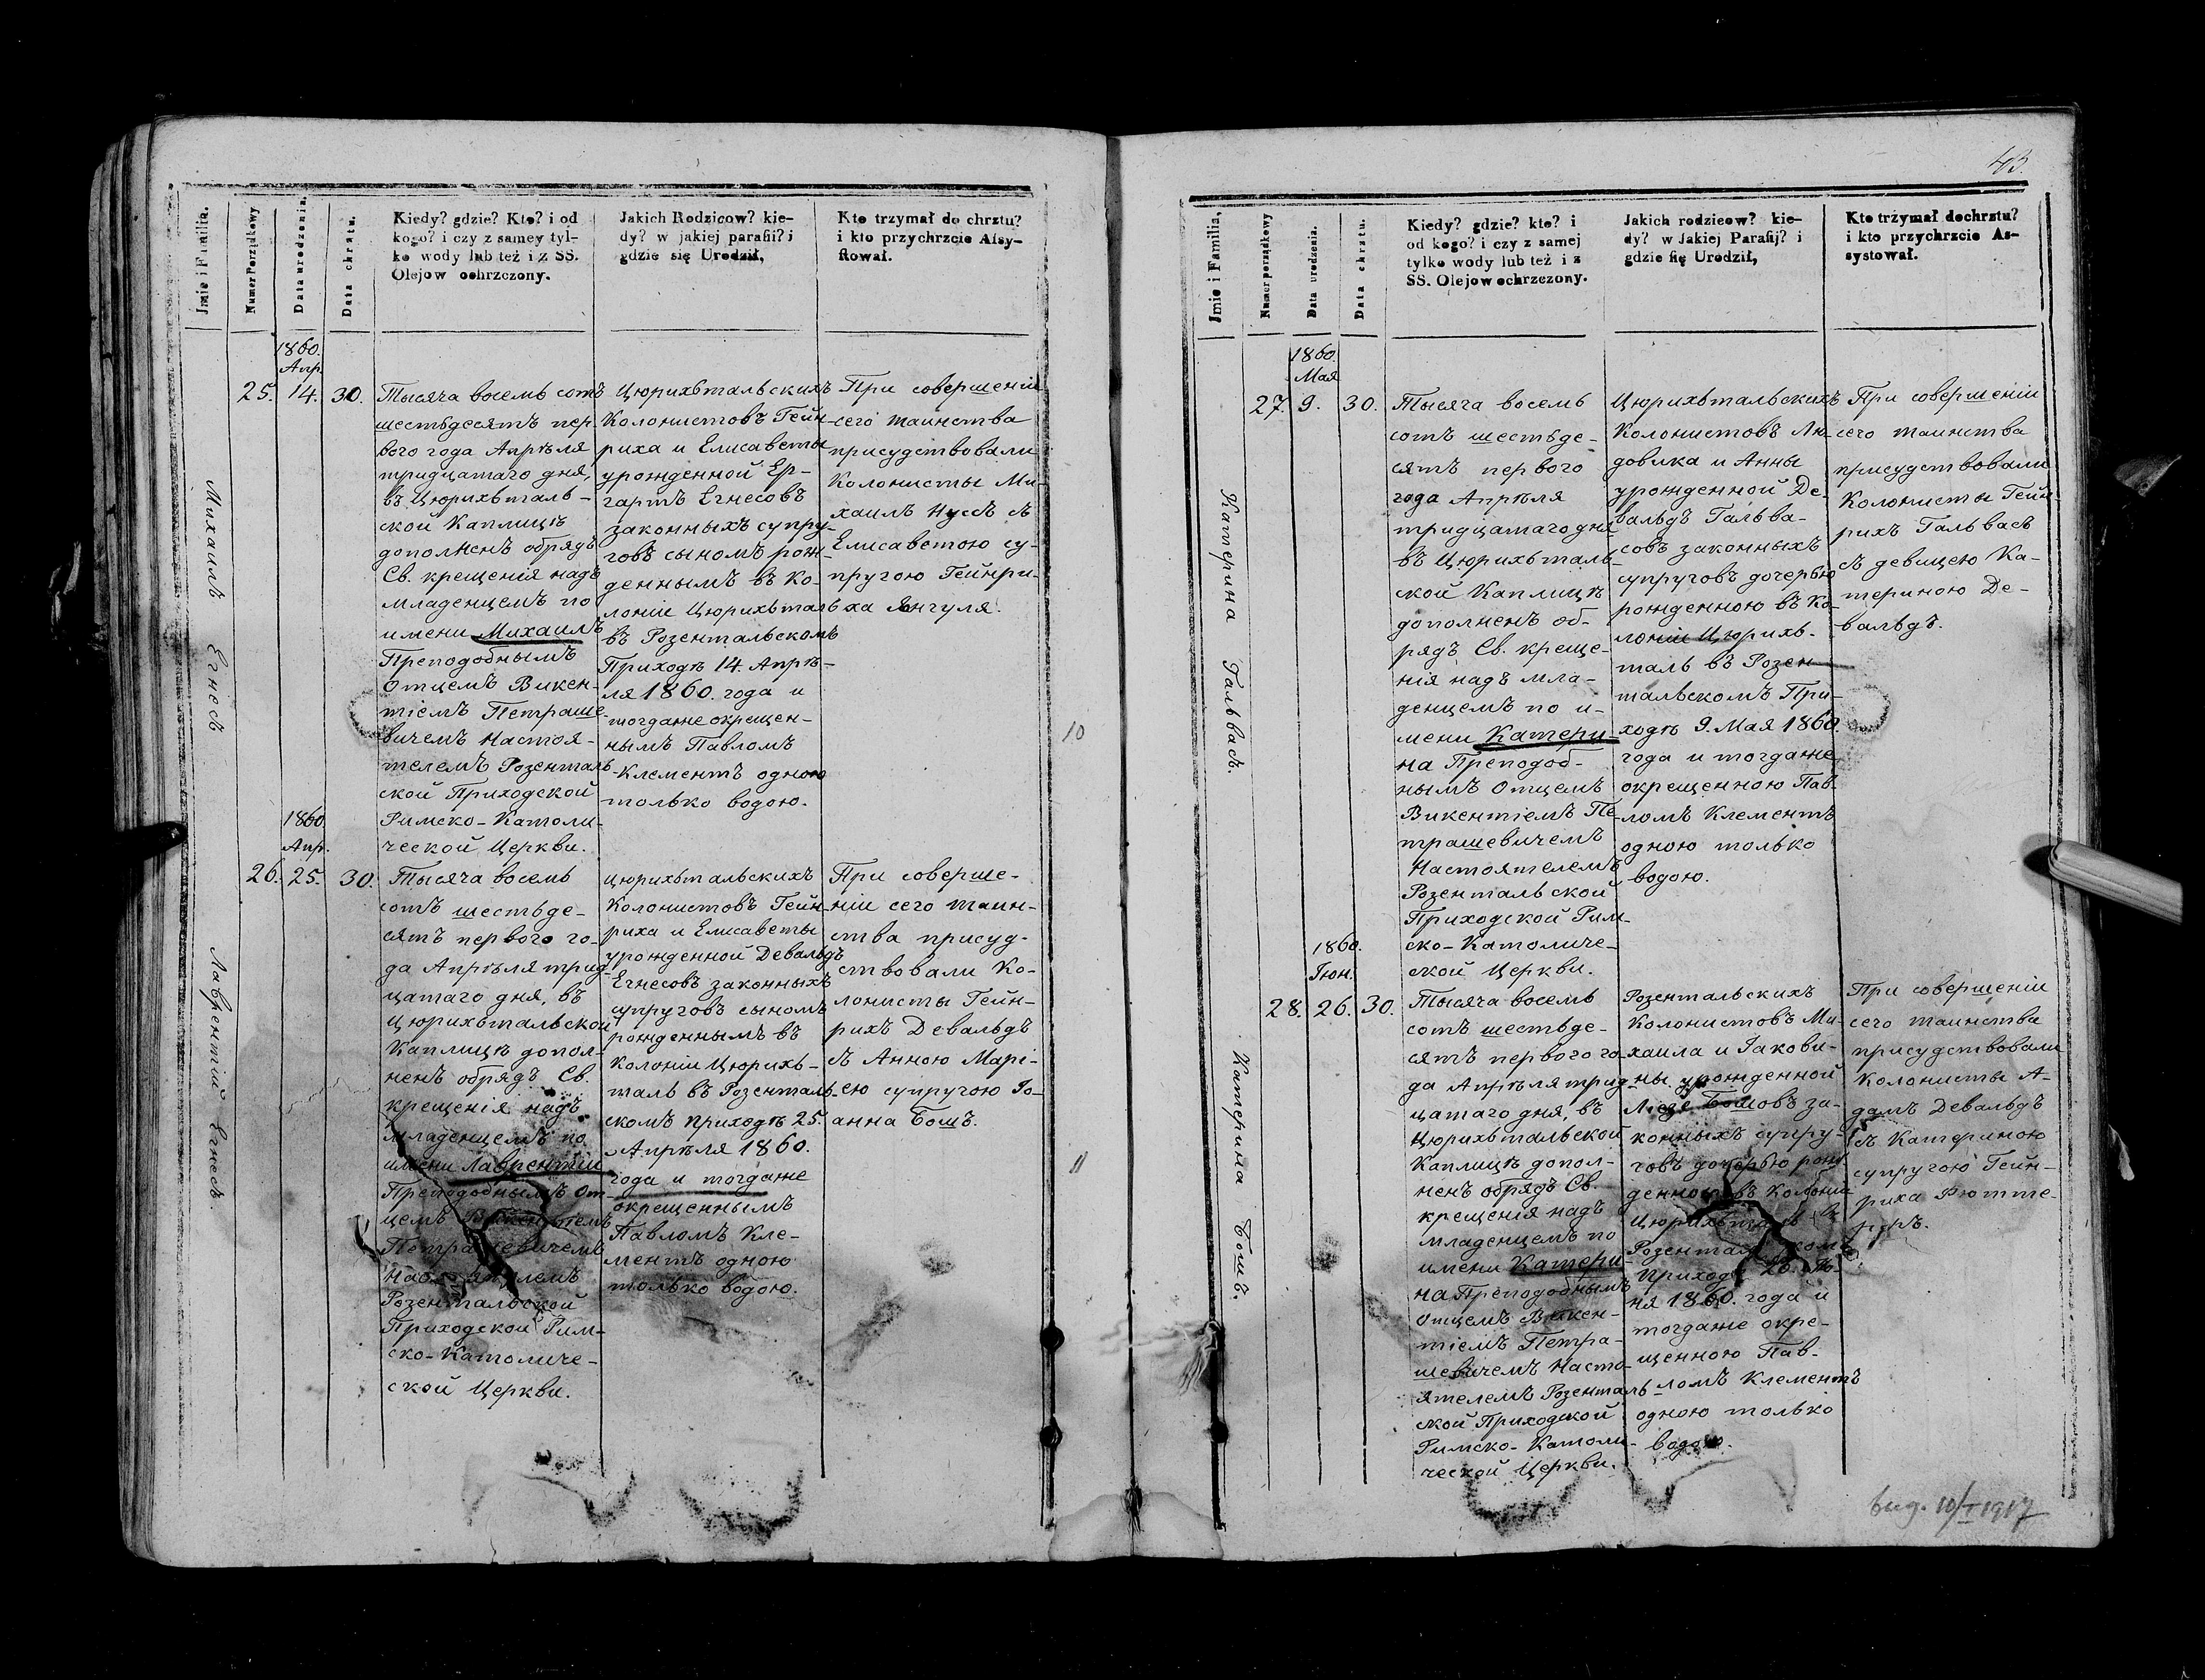 43.
Jmie i Familia.
Numer Porządkowy
Data urodzenia.
Data chrztu.
Kiedy? gdzie? Kto? i od
kogo? i czy z samey tyl-
ko wody lub też i z SS.
Olejow ochrzczony.
Jakich Rodzicow? kie-
dy? w jakiej parafii? i
gdzie się Urodził,
Kto trzymał do chrztu?
i kto przychrzcie Afsy-
ftował.
Михаилъ Егнесъ
1860.
Апр.
25. 14. 30.
Тысяча восемь сотъ
шестьдесятъ пер-
вого года Апрѣля
тридцатаго дня,
въ Цюрихталь-
ской Каплицѣ
дополненъ обрядъ
Св. крещенія надъ
младенцемъ по
имени Михаилъ
Преподобнымъ
Отцемъ Викен-
тіемъ Петраше-
вичемъ Настоя-
телемъ Розенталь-
ской Приходской
Римско-Католи-
ческой Церкви.
Цюрихтальскихъ
Колонистовъ Гейн-
риха и Елисаветы
урожденной Ер-
гартъ Егнесовъ
законныхъ супру-
говъ сыномъ рож-
деннымъ въ Ко-
лоніи Цюрихталь
въ Розентальскомъ
Приходѣ 14. Апрѣ-
ля 1860. года и
тогдаже окрещен-
нымъ Павломъ
Клементъ одною
только водою.
При совершеніи
сего таинства
присудствовали
Колонисты Ми-
хаилъ Нуссъ съ
Елисаветою су-
пругою Гейнри-
ха Янгуля.
10
Лаврентій Егнесъ.
1860
Апр.
26. 25. 30.
Тысяча восемь
сотъ шестьде-
сятъ первого го-
да Апрѣля трид-
цатаго дня, въ
Цюрихтальской
Каплицѣ допол-
ненъ обрядъ Св.
крещенія надъ
младенцемъ по
имени Лаврентій
Преподобнымъ От-
цемъ Викентіемъ
Петрашевичемъ
Настоятелемъ
Розентальской
Приходской Рим-
ско-Католиче-
ской Церкви.
Цюрихтальскихъ
Колонистовъ Гейн-
риха и Елисаветы
урожденной Девальдъ
Егнесовъ законныхъ
супруговъ сыномъ
рожденнымъ въ
Колоніи Цюрих-
таль въ Розенталь-
скомъ приходѣ 25.
Апрѣля 1860.
года и тогдаже
окрещеннымъ
Павломъ Кле-
ментъ одною
только водою.
При соверше-
ніи сего таин-
ства присуд-
ствовали Ко-
лонисты Гейн-
рихъ Девальдъ
съ Анною Марі-
ею супругою Іо-
анна Бошъ.
11
Jmie i Familia.
Numer porządkowy
Data urodzenia.
Data chrztu.
Kiedy? gdzie? kto? i
od kogo? i czy z samej
tylko wody lub też i z
SS. Olejow ochrzczony.
Jakich rodzicow? kie-
dy? w Jakiej Parafij? i
gdzie fię Urodził,
Kto trżymał dochrztu?
i kto przychrzcie As-
systował.
Катерина Гальвасъ.
1860.
Мая
27. 9. 30.
Тысяча восемь
сотъ шестьде-
сятъ первого
года Апрѣля
тридцатаго дня
въ Цюрихталь-
ской Каплицѣ
дополненъ об-
рядъ Св. креще-
нія надъ мла-
денцемъ по и-
мени Катери-
на Преподоб-
нымъ Отцемъ
Викентіемъ Пе-
трашевичемъ
Настоятелемъ
Розентальской
Приходской Рим-
ско-Католиче-
ской Церкви.
Цюрихтальскихъ
Колонистовъ Лю-
довика и Анны
урожденной Де-
вальдъ Гальва-
совъ законныхъ
супруговъ дочерью
рожденною въ Ко-
лоніи Цюрих-
таль въ Розен-
тальскомъ При-
ходѣ 9. Мая 1860.
года и тогдаже
окрещенною Пав-
ломъ Клементъ
одною только
водою.
При совершеніи
сего таинства
присудствовали
Колонисты Гейн-
рихъ Гальвасъ
съ девицею Ка-
териною Де-
вальдъ.
Катерина Бошъ.
1860.
Іюн.
28. 26. 30.
Тысяча восемь
сотъ шестьде-
сятъ первого го-
да Апрѣля трид-
цатаго дня, въ
Цюрихтальской
Каплицѣ допол-
ненъ обрядъ Св.
крещенія надъ
младенцемъ по
имени Катери-
на Преподобнымъ
Отцемъ Викен-
тіемъ Петра-
шевичемъ Насто-
ятелемъ Розенталь-
ской Приходской
Римско-Католи-
ческой Церкви.
Розентальскихъ
Колонистовъ Ми-
хаила и Іакови-
ны урожденной
Бошовъ за-
конныхъ супру-
говъ дочерью рож-
денною въ Колоніи
Цюрихталь въ
Розентальскомъ
Приходѣ 26. Ію-
ня 1860. года и
тогдаже окре-
щенною Пав-
ломъ Клементъ
одною только
водою.
При совершеніи
сего таинства
присудствовали
Колонисты А-
дамъ Девальдъ
съ Катериною
супругою Гейн-
риха Рютте-
ръ.
выд. 10/I 1917